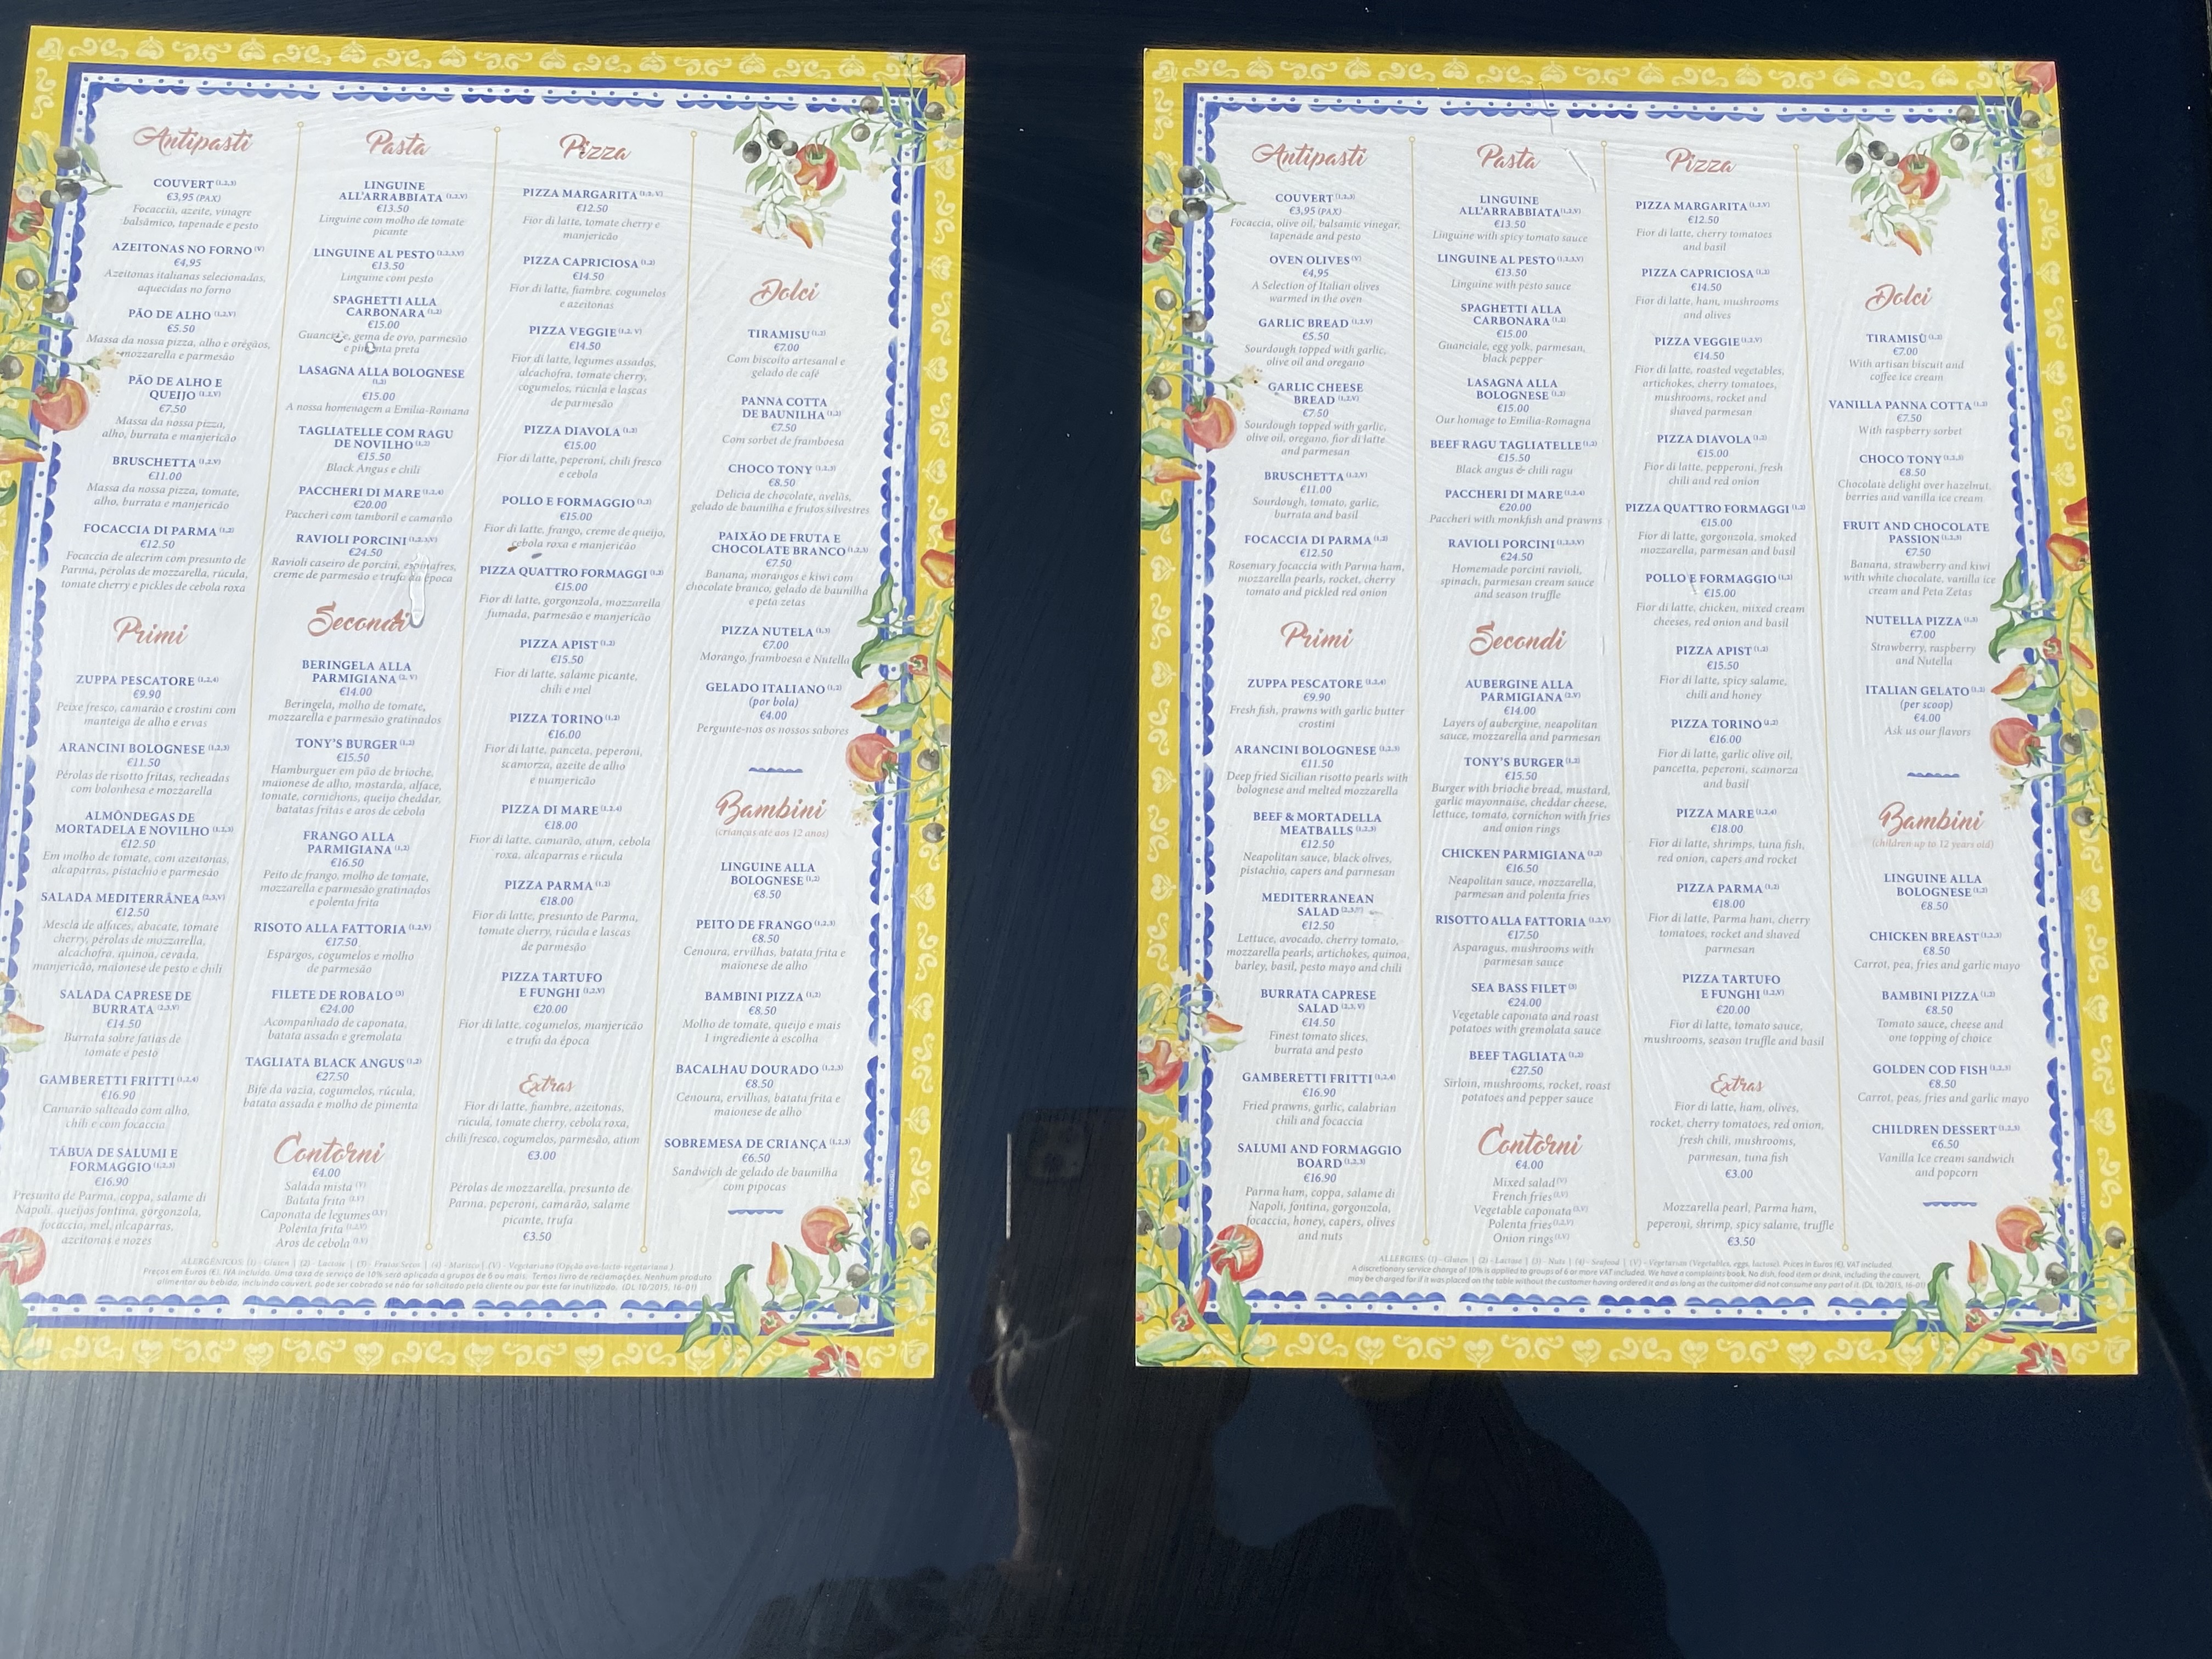 Antipasti
COUVERT (1,2,3)
€3,95 (PAX)
Focaccia, azeite, vinagre
balsâmico, tapenade e pesto
AZEITONAS NO FORNO (V)
€4,95
Azeitonas italianas selecionadas,
aquecidas no forno
PÃO DE ALHO (1,2,V)
€5.50
Massa da nossa pizza, alho e orégãos,
mozzarella e parmesão
PÃO DE ALHO E
QUEIJO (1,2,V)
€7.50
Massa da nossa pizza,
alho, burrata e manjericão
BRUSCHETTA (1,2,V)
€11.00
Massa da nossa pizza, tomate,
alho, burrata e manjericão
FOCACCIA DI PARMA (1,2)
€12.50
Focaccia de alecrim com presunto de
Parma, pérolas de mozzarella, rúcula,
tomate cherry e pickles de cebola roxa
Primi
ZUPPA PESCATORE (1,2,4)
€9.90
Peixe fresco, camarão e crostini com
manteiga de alho e ervas
ARANCINI BOLOGNESE (1,2,3)
€11.50
Pérolas de risotto fritas, recheadas
com bolonhesa e mozzarella
ALMÔNDEGAS DE
MORTADELA E NOVILHO (1,2,3)
€12.50
Em molho de tomate, com azeitonas,
alcaparras, pistachio e parmesão
SALADA MEDITERRÂNEA (2,3,V)
€12.50
Mescla de alfaces, abacate, tomate
cherry, pérolas de mozzarella,
alcachofra, quinoa, cevada,
manjericão, maionese de pesto e chili
SALADA CAPRESE DE
BURRATA (2,3,V)
€14.50
Burrata sobre fatias de
tomate e pesto
GAMBERETTI FRITTI (1,2,4)
€16.90
Camarão salteado com alho,
chili e com focaccia
TÁBUA DE SALUMI E
FORMAGGIO (1,2,3)
€16.90
Presunto de Parma, coppa, salame di
Napoli, queijos fontina, gorgonzola,
focaccia, mel, alcaparras,
azeitonas e nozes
Pasta
LINGUINE
ALL'ARRABBIATA (1,2,V)
€13.50
Linguine com molho de tomate
picante
LINGUINE AL PESTO (1,2,3,V)
€13.50
Linguine com pesto
SPAGHETTI ALLA
CARBONARA (1,2)
€15.00
gema de ovo, parmesão
e pimenta preta
LASAGNA ALLA BOLOGNESE
(1,2)
€15.00
A nossa homenagem a Emilia-Romana
TAGLIATELLE COM RAGU
DE NOVILHO (1,2)
€15.50
Black Angus e chili
PACCHERI DI MARE (1,2,4)
€20.00
Paccheri com tamboril e camarão
RAVIOLI PORCINI (1,2,3,V)
€24.50
Ravioli caseiro de porcini, espinafres,
creme de parmesão e trufa da época
Secondi
BERINGELA ALLA
PARMIGIANA (2, V)
€14.00
Beringela, molho de tomate,
mozzarella e parmesão gratinados
TONY'S BURGER (1,2)
€15.50
Hamburguer em pão de brioche,
maionese de alho, mostarda, alface,
tomate, cornichons, queijo cheddar,
batatas fritas e aros de cebola
FRANGO ALLA
PARMIGIANA (1,2)
€16.50
Peito de frango, molho de tomate,
mozzarella e parmesão gratinados
e polenta frita
RISOTO ALLA FATTORIA (1,2,V)
€17.50
Espargos, cogumelos e molho
de parmesão
FILETE DE ROBALO (3)
€24.00
Acompanhado de caponata,
batata assada e gremolata
TAGLIATA BLACK ANGUS (1,2)
€27.50
Bife da vazia, cogumelos, rúcula,
batata assada e molho de pimenta
Contorni
€4.00
Salada mista (V)
Batata frita (1,V)
Caponata de legumes (3,V)
Polenta frita (1,2,V)
Aros de cebola (1,V)
Pizza
PIZZA MARGARITA (1,2, V)
€12.50
Fior di latte, tomate cherry e
manjericão
PIZZA CAPRICIOSA (1,2)
€14.50
Fior di latte, fiambre, cogumelos
e azeitonas
PIZZA VEGGIE (1,2, V)
€14.50
Fior di latte, legumes assados,
alcachofra, tomate cherry,
cogumelos, rúcula e lascas
de parmesão
PIZZA DIAVOLA (1,2)
€15.00
Fior di latte, peperoni, chili fresco
e cebola
POLLO E FORMAGGIO (1,2)
€15.00
Fior di latte, frango, creme de queijo,
cebola roxa e manjericão
PIZZA QUATTRO FORMAGGI (1,2)
€15.00
Fior di latte, gorgonzola, mozzarella
fumada, parmesão e manjericão
PIZZA APIST (1,2)
€15.50
Fior di latte, salame picante,
chili e mel
PIZZA TORINO (1,2)
€16.00
Fior di latte, panceta, peperoni,
scamorza, azeite de alho
e manjericão
PIZZA DI MARE (1,2,4)
€18.00
Fior di latte, camarão, atum, cebola
roxa, alcaparras e rúcula
PIZZA PARMA (1,2)
€18.00
Fior di latte, presunto de Parma,
tomate cherry, rúcula e lascas
de parmesão
PIZZA TARTUFO
E FUNGHI (1,2,V)
€20.00
Fior di latte, cogumelos, manjericão
e trufa da época
Extras
Fior di latte, fiambre, azeitonas,
rúcula, tomate cherry, cebola roxa,
chili fresco, cogumelos, parmesão, atum
€3.00
Pérolas de mozzarella, presunto de
Parma, peperoni, camarão, salame
picante, trufa
€3.50
Dolci
TIRAMISU (1,2)
€7.00
Com biscoito artesanal e
gelado de café
PANNA COTTA
DE BAUNILHA (1,2)
€7.50
Com sorbet de framboesa
CHOCO TONY (1,2,3)
€8.50
Delícia de chocolate, avelãs,
gelado de baunilha e frutos silvestres
PAIXÃO DE FRUTA E
CHOCOLATE BRANCO (1,2,3)
€7.50
Banana, morangos e kiwi com
chocolate branco, gelado de baunilha
e peta zetas
PIZZA NUTELA (1,3)
€7.00
Morango, framboesa e Nutella
GELADO ITALIANO (1,2)
(por bola)
€4.00
Pergunte-nos os nossos sabores
Bambini
(crianças até aos 12 anos)
LINGUINE ALLA
BOLOGNESE (1,2)
€8.50
PEITO DE FRANGO (1,2,3)
€8.50
Cenoura, ervilhas, batata frita e
maionese de alho
BAMBINI PIZZA (1,2)
€8.50
Molho de tomate, queijo e mais
1 ingrediente à escolha
BACALHAU DOURADO (1,2,3)
€8.50
Cenoura, ervilhas, batata frita e
maionese de alho
SOBREMESA DE CRIANÇA (1,2,3)
€6.50
Sandwich de gelado de baunilha
com pipocas
ALERGÉNICOS: (1) - Glúten | (2) - Lactose | (3) - Frutos Secos | (4) - Marisco | (V) - Vegetariano (Opção ovo-lacto-vegetariana ).
Preços em Euros (€). IVA incluído. Uma taxa de serviço de 10% será aplicada a grupos de 6 ou mais. Temos livro de reclamações. Nenhum produto
alimentar ou bebida, incluindo couvert, pode ser cobrado se não for solicitado pelo cliente ou por este for inutilizado. (DL 10/2015, 16-01)
Antipasti
COUVERT (1,2,3)
€3,95 (PAX)
Focaccia, olive oil, balsamic vinegar,
tapenade and pesto
OVEN OLIVES (V)
€4,95
A Selection of Italian olives
warmed in the oven
GARLIC BREAD (1,2,V)
€5.50
Sourdough topped with garlic,
olive oil and oregano
GARLIC CHEESE
BREAD (1,2,V)
€7.50
Sourdough topped with garlic,
olive oil, oregano, fior di latte
and parmesan
BRUSCHETTA (1,2,V)
€11.00
Sourdough, tomato, garlic,
burrata and basil
FOCACCIA DI PARMA (1,2)
€12.50
Rosemary focaccia with Parma ham,
mozzarella pearls, rocket, cherry
tomato and pickled red onion
Primi
ZUPPA PESCATORE (1,2,4)
€9.90
Fresh fish, prawns with garlic butter
crostini
ARANCINI BOLOGNESE (1,2,3)
€11.50
Deep fried Sicilian risotto pearls with
bolognese and melted mozzarella
BEEF & MORTADELLA
MEATBALLS (1,2,3)
€12.50
Neapolitan sauce, black olives,
pistachio, capers and parmesan
MEDITERRANEAN
SALAD
€12.50
Lettuce, avocado, cherry tomato,
mozzarella pearls, artichokes, quinoa,
barley, basil, pesto mayo and chili
BURRATA CAPRESE
SALAD (2,3, V)
€14.50
Finest tomato slices,
burrata and pesto
GAMBERETTI FRITTI (1,2,4)
€16.90
Fried prawns, garlic, calabrian
chili and focaccia
SALUMI AND FORMAGGIO
BOARD (1,2,3)
€16.90
Parma ham, coppa, salame di
Napoli, fontina, gorgonzola,
focaccia, honey, capers, olives
and nuts
Pasta
LINGUINE
ALL'ARRABBIATA (1,2,V)
€13.50
Linguine with spicy tomato sauce
LINGUINE AL PESTO (1,2,3,V)
€13.50
Linguine with pesto sauce
SPAGHETTI ALLA
CARBONARA (1,2)
€15.00
Guanciale, egg yolk, parmesan,
black pepper
LASAGNA ALLA
BOLOGNESE (1,2)
€15.00
Our homage to Emilia-Romagna
BEEF RAGU TAGLIATELLE (1,2)
€15.50
Black angus & chili ragu
PACCHERI DI MARE (1,2,4)
€20.00
Paccheri with monkfish and prawns
RAVIOLI PORCINI (1,2,3,V)
€24.50
Homemade porcini ravioli,
spinach, parmesan cream sauce
and season truffle
Secondi
AUBERGINE ALLA
PARMIGIANA (2,V)
€14.00
Layers of aubergine, neapolitan
sauce, mozzarella and parmesan
TONY'S BURGER (1,2)
€15.50
Burger with brioche bread, mustard,
garlic mayonnaise, cheddar cheese,
lettuce, tomato, cornichon with fries
and onion rings
CHICKEN PARMIGIANA (1,2)
€16.50
Neapolitan sauce, mozzarella,
parmesan and polenta fries
RISOTTO ALLA FATTORIA (1,2,V)
€17.50
Asparagus, mushrooms with
parmesan sauce
SEA BASS FILET (3)
€24.00
Vegetable caponata and roast
potatoes with gremolata sauce
BEEF TAGLIATA (1,2)
€27.50
Sirloin, mushrooms, rocket, roast
potatoes and pepper sauce
Contorni
€4.00
Mixed salad (V)
French fries (1,V)
Vegetable caponata (3,V)
Polenta fries (1,2,V)
Onion rings (1,V)
Pizza
PIZZA MARGARITA (1,2,V)
€12.50
Fior di latte, cherry tomatoes
and basil
PIZZA CAPRICIOSA (1,2)
€14.50
Fior di latte, ham, mushrooms
and olives
PIZZA VEGGIE (1,2,V)
€14.50
Fior di latte, roasted vegetables,
artichokes, cherry tomatoes,
mushrooms, rocket and
shaved parmesan
PIZZA DIAVOLA (1,2)
€15.00
Fior di latte, pepperoni, fresh
chili and red onion
PIZZA QUATTRO FORMAGGI (1,2)
€15.00
Fior di latte, gorgonzola, smoked
mozzarella, parmesan and basil
POLLO E FORMAGGIO (1,2)
€15.00
Fior di latte, chicken, mixed cream
cheeses, red onion and basil
PIZZA APIST (1,2)
€15.50
Fior di latte, spicy salame,
chili and honey
PIZZA TORINO (1,2)
€16.00
Fior di latte, garlic olive oil,
pancetta, peperoni, scamorza
and basil
PIZZA MARE (1,2,4)
€18.00
Fior di latte, shrimps, tuna fish,
red onion, capers and rocket
PIZZA PARMA (1,2)
€18.00
Fior di latte, Parma ham, cherry
tomatoes, rocket and shaved
parmesan
PIZZA TARTUFO
E FUNGHI (1,2,V)
€20.00
Fior di latte, tomato sauce,
mushrooms, season truffle and basil
Extras
Fior di latte, ham, olives,
rocket, cherry tomatoes, red onion,
fresh chili, mushrooms,
parmesan, tuna fish
€3.00
Mozzarella pearl, Parma ham,
peperoni, shrimp, spicy salame, truffle
€3.50
Dolci
TIRAMISÚ (1,2)
€7.00
With artisan biscuit and
coffee ice cream
VANILLA PANNA COTTA (1,2)
€7.50
With raspberry sorbet
CHOCO TONY (1,2,3)
€8.50
Chocolate delight over hazelnut,
berries and vanilla ice cream
FRUIT AND CHOCOLATE
PASSION (1,2,3)
€7.50
Banana, strawberry and kiwi
with white chocolate, vanilla ice
cream and Peta Zetas
NUTELLA PIZZA (1,3)
€7.00
Strawberry, raspberry
and Nutella
ITALIAN GELATO (1,2)
(per scoop)
€4.00
Ask us our flavors
Bambini
(children up to 12 years old)
LINGUINE ALLA
BOLOGNESE (1,2)
€8.50
CHICKEN BREAST (1,2,3)
€8.50
Carrot, pea, fries and garlic mayo
BAMBINI PIZZA (1,2)
€8.50
Tomato sauce, cheese and
one topping of choice
GOLDEN COD FISH (1,2,3)
€8.50
Carrot, peas, fries and garlic mayo
CHILDREN DESSERT (1,2,3)
€6.50
Vanilla Ice cream sandwich
and popcorn
ALLERGIES: (1) - Gluten | (2) - Lactose | (3) - Nuts | (4) - Seafood | (V) - Vegetarian (Vegetables, eggs, lactose). Prices in Euros (€). VAT included.
A discretionary service charge of 10% is applied to groups of 6 or more VAT included. We have a complaints book. No dish, food item or drink, including the couvert,
may be charged for if it was placed on the table without the customer having ordered it and as long as the customer did not consume any part of it. (DL 10/2015, 16-01)